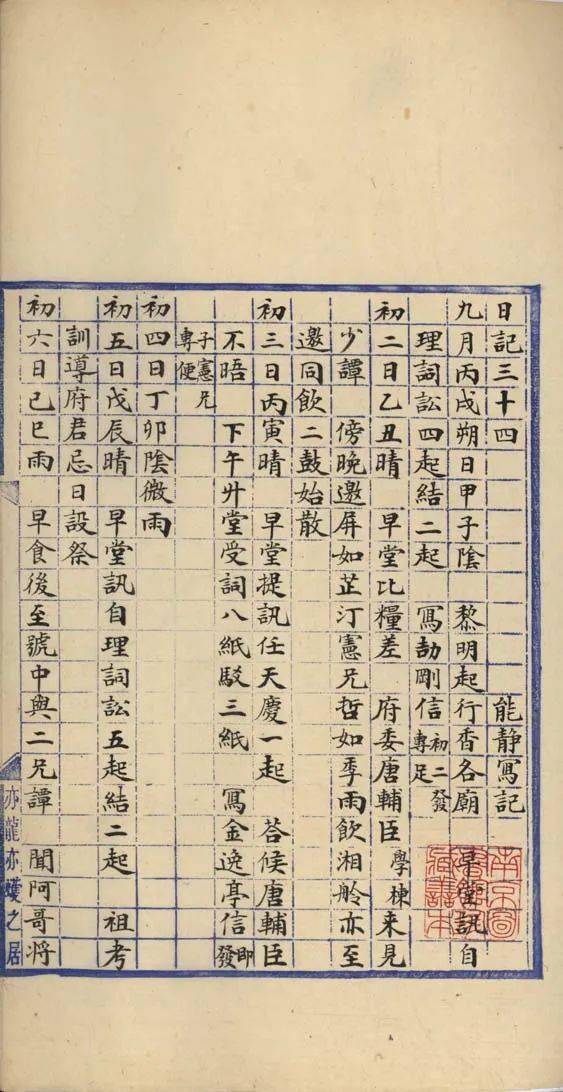 日記三十四　能靜寫記
九月丙戌朔日甲子陰　黎明起行香各廟　早堂訊自
理詞訟四起結二起　寫劼剛信初二發專足
初二日乙丑晴　早堂比糧差　府委唐輔臣學棟來見
少譚　傍晚邀屏如芷汀憲兄哲如季雨飲湘舲亦至
邀同飲二鼓始散
初三日丙寅晴　早堂提訊任天慶一起　荅候唐輔臣
不晤　下午升堂受詞八紙駁三紙　寫金逸亭信即發
子憲兄專便
初四日丁卯陰微雨
初五日戊辰晴　早堂訊自理詞訟五起結二起　祖考
訓導府君忌日設祭
初六日己巳雨　早食後至號中與二兄譚　聞阿哥將
亦龍亦蠖之居
南京圖
書館
藏善本